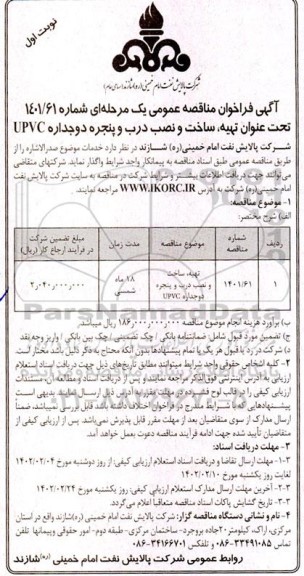 نوبت اول
شرکت پالایش نفت امام خمینی (ره) شازند (سهامی عام)
آگهی فراخوان مناقصه عمومی یک مرحله‌ای شماره ۱۴۰۱/۶۱
تحت عنوان تهیه، ساخت و نصب درب و پنجره دوجداره UPVC
شرکت پالایش نفت امام خمینی(ره) شازند در نظر دارد خدمات موضوع صدرالاشاره را از
طریق مناقصه عمومی طبق اسناد مناقصه به پیمانکار واجد شرایط واگذار نماید. شرکتهای متقاضی
می‌توانند جهت دریافت اطلاعات بیشتر و شرایط شرکت در مناقصه به سایت شرکت پالایش نفت
امام خمینی(ره) شرکت به آدرس WWW.IKORC.IR مراجعه نمایند.
۱- موضوع مناقصه:
الف) شرح مختصر:
ردیف شماره مناقصه موضوع مناقصه مدت زمان مبلغ تضمین شرکت در فرآیند ارجاع کار (ریال)
۱ ۱۴۰۱/۶۱ تهیه، ساخت و نصب درب و پنجره دوجداره UPVC ۱۸ ماه شمسی ۲,۰۴۰,۰۰۰,۰۰۰
ب) برآورد هزینه انجام موضوع مناقصه ۱۸۶,۰۰۰,۰۰۰,۰۰۰ ریال میباشد.
ج) تضمین مورد قبول شامل: ضمانتنامه بانکی / چک تضمینی / چک بین بانکی / واریز وجه نقد
د) شرکت در رد یا قبول هر یک یا تمام پیشنهادها بدون آنکه محتاج به ذکر دلیل باشد مختار است.
۲- کلیه اشخاص حقوقی واجد شرایط میتوانند مطابق تاریخ‌های ذیل جهت دریافت اسناد استعلام
ارزیابی به آدرس اینترنتی فوق‌الذکر مراجعه نمایند و پس از دریافت اسناد و مطالعه
متقاضیان تأیید شده جهت ادامه فرآیند مناقصه دعوت بعمل خواهد آمد.
۳- مهلت دریافت اسناد:
۳-۱- مهلت ارسال تقاضا و دریافت اسناد استعلام ارزیابی کیفی: از روز دوشنبه مورخ ۱۴۰۲/۰۲/۰۴
لغایت روز یکشنبه مورخ ۱۴۰۲/۰۲/۱۰
۳-۲- آخرین مهلت ارسال مدارک استعلام ارزیابی کیفی: روز یکشنبه مورخ ۱۴۰۲/۰۲/۲۴
۳-۳- تاریخ گشایش پاکات اسناد مناقصه متعاقبا اعلام می‌گردد
۴- نام و نشانی دستگاه مناقصه گزار: شرکت پالایش نفت امام خمینی (ره)شازند واقع در استان
مرکزی، اراک، کیلومتر ۲۰جاده بروجرد- ساختمان مرکزی- طبقه دوم- امور حقوقی وپیمانها تلفن
تماس ۳۳۴۹۱۰۸۵-۰۸۶ و تلفکس ۳۴۱۶۶۷۰۱-۰۸۶
روابط عمومی شرکت پالایش نفت امام خمینی (ره)شازند